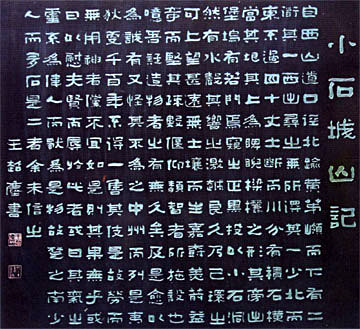 小石城山記
自西山道口徑北踰黃茅嶺而下有二
道其一西出尋之無所得其一少北而
東不過四十丈土斷而川分有積石橫
當其垠其上為睥睨梁欐之形其旁出
堡塢有若門焉窺之正黑投以小石洞
然有水聲其響之激越良久乃已環之
可上望甚遠無土壤而生嘉樹美箭益
奇而堅其疏數偃仰類智者所施設也
噫吾疑造物者之有無久矣及是愈以
為誠有又怪其不為之中州而列是夷
狄更千百年不得一售其伎是故勞而
無用神者儻不宜如是則其果無乎或
曰以慰夫賢而辱於此者或曰其氣之
靈不為偉人而獨為是物故楚之南少
人而多石是二者余未信之
王超鷹書